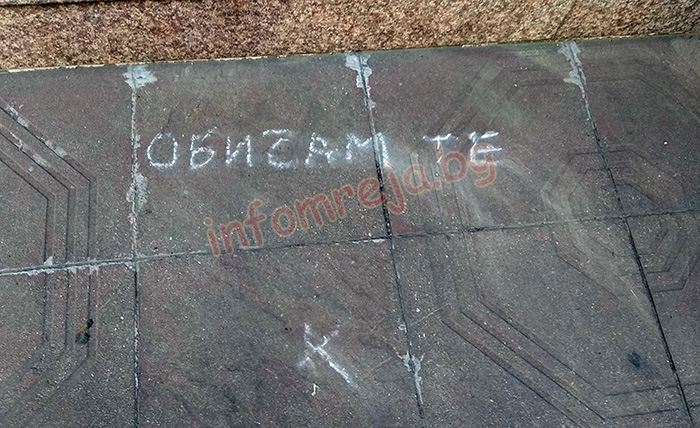 ОБИЧАМ ТЕ
infomreja.bg
К